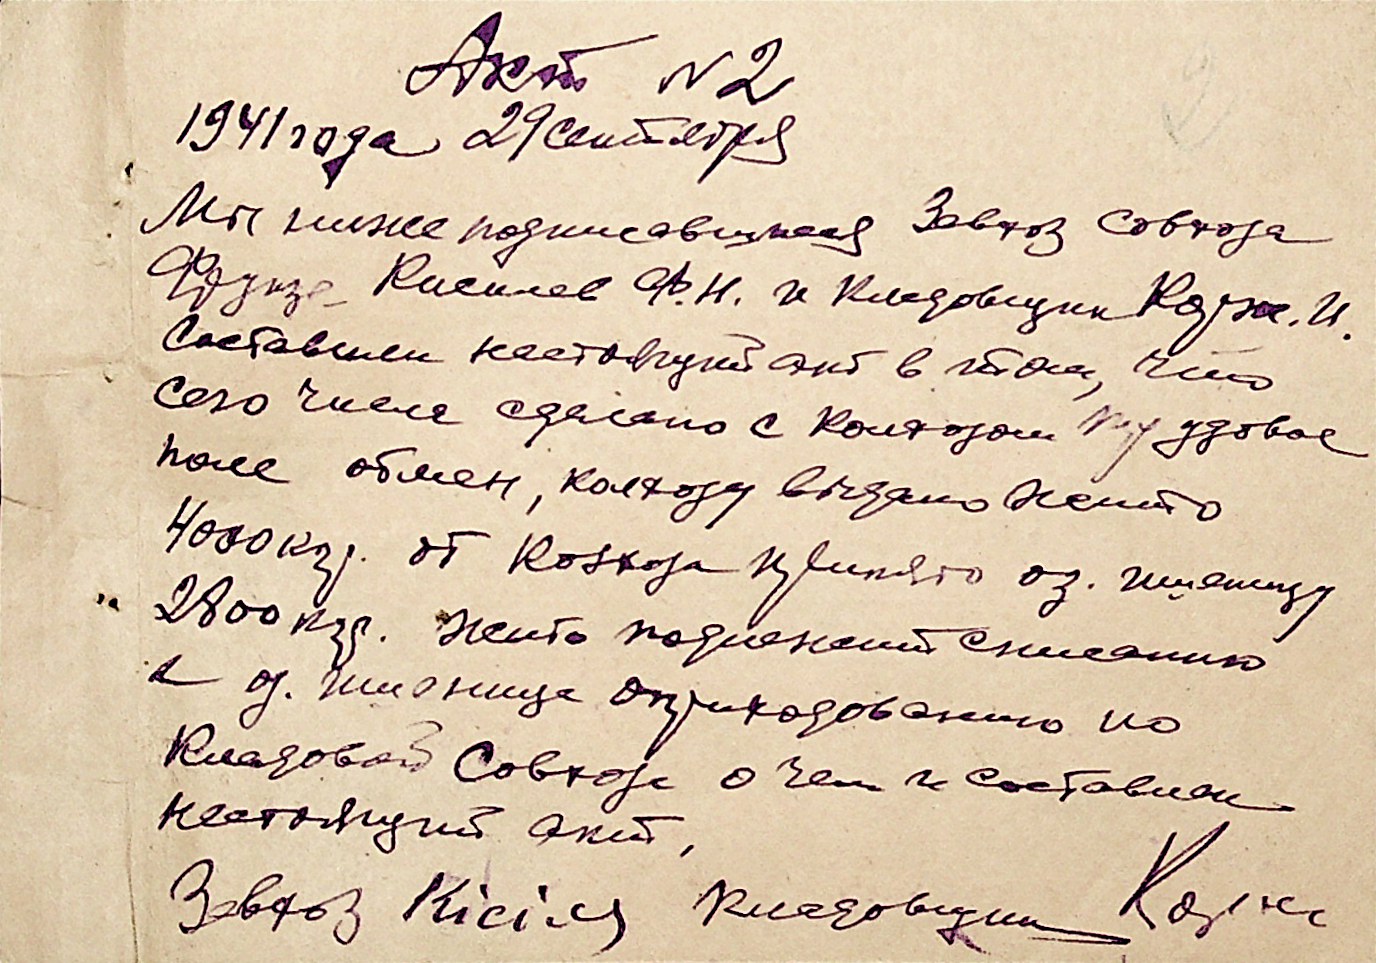 Акт N 2
1941 года 29 сентября
Мы ниже подписавшиеся Завхоз Совхоза
Фрунзе Киселев Ф.Н. и Кладовщик Корж. И.
Составили настоящий акт в том, что
сего числа сделано с Колхозом Трудовое
поле обмен, колхозу выдано жито
4000 кгр. от Колхоза принято оз. пшеницу
2800 кгр. жито подлежит списанию
а оз. пшеница оприходованию по
Кладовой Совхоза о чем и составлен
настоящий акт,
Завхоз кладовщик Корж